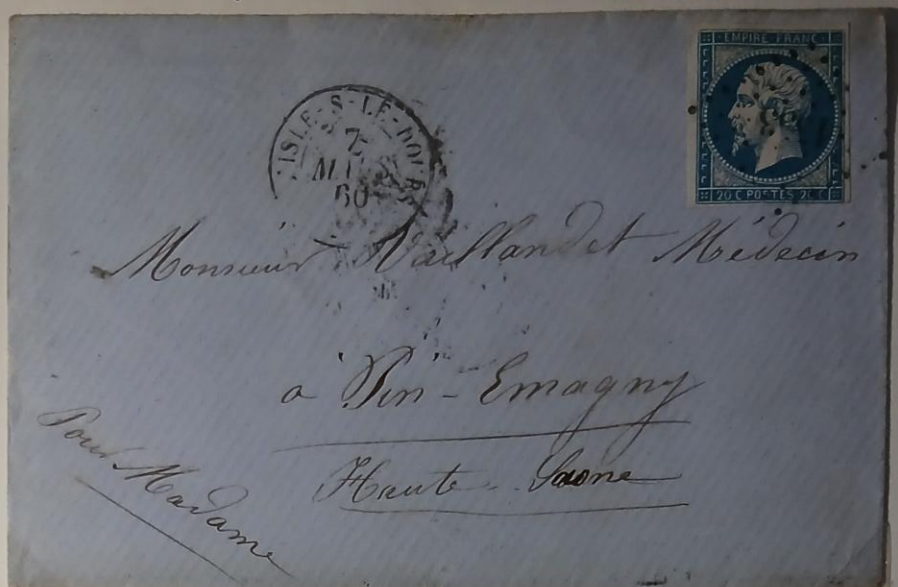 EMPIRE FRANC
20 C POSTES 20 C
L'ISLE-S-LE-DOUBS
7
60
Monsieur Vaillandet Médecin
à Pin-Emagny
Haute-Saone
Pour Madame